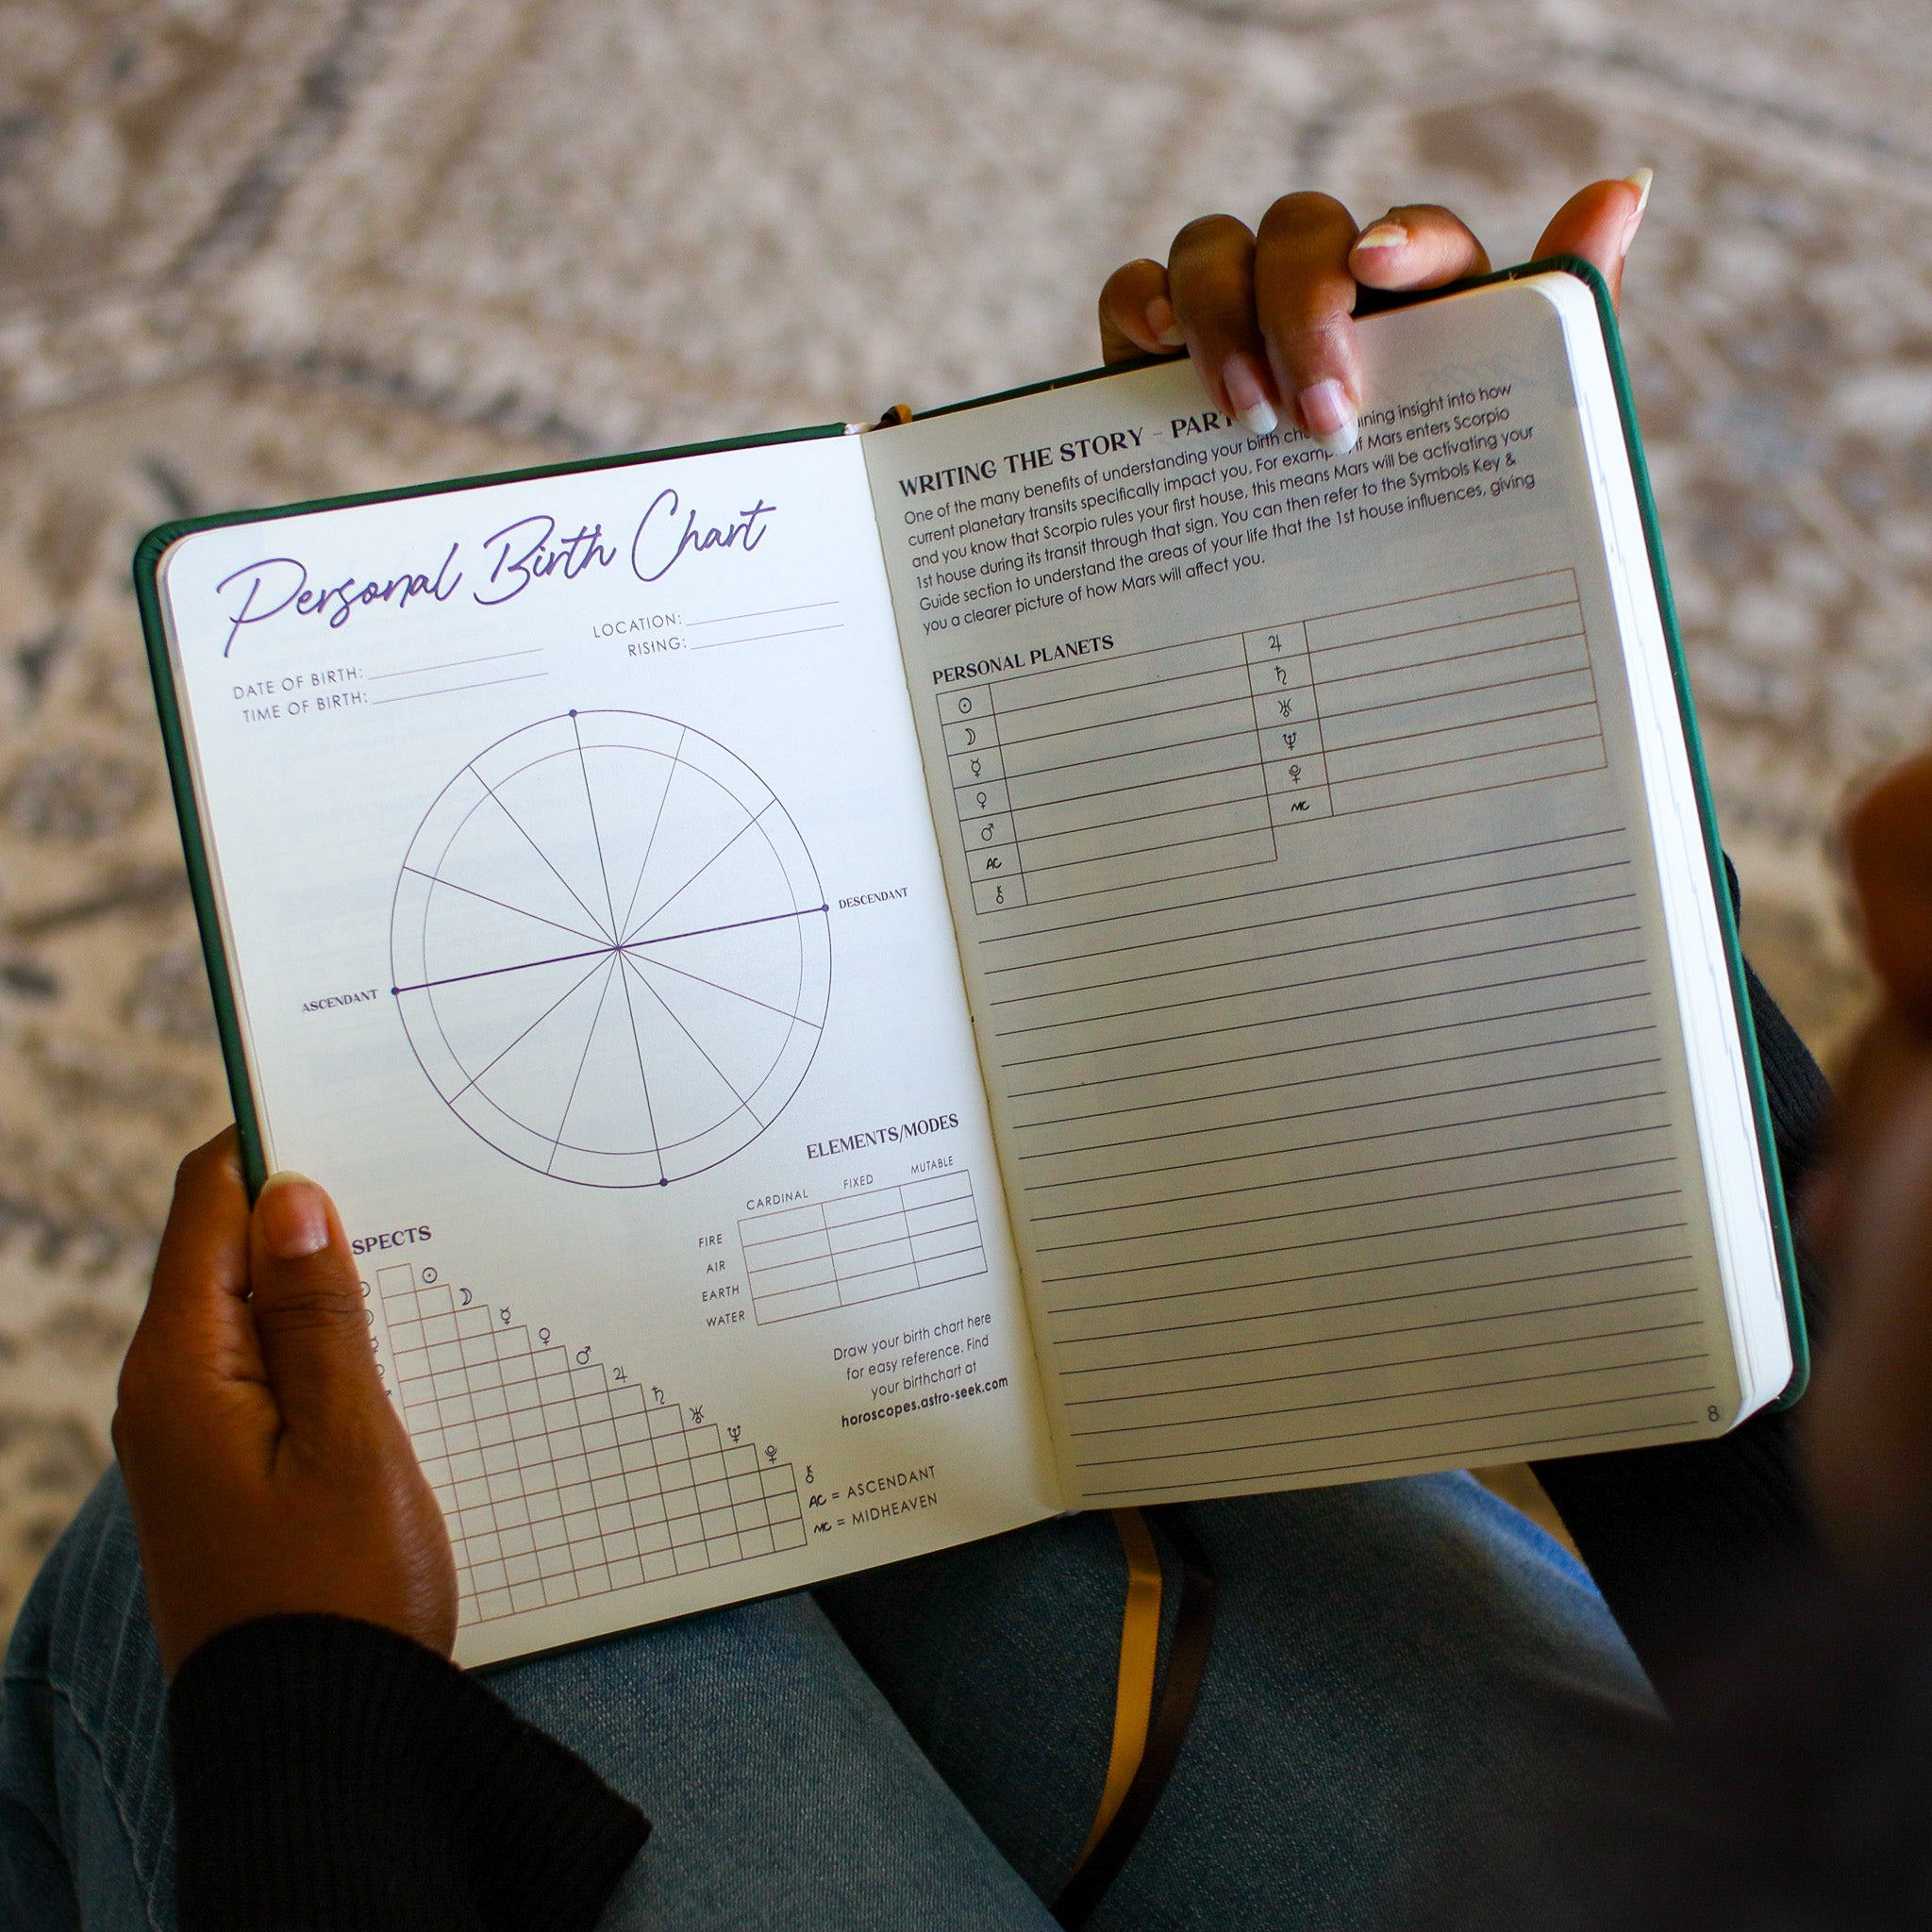 Personal Birth Chart
DATE OF BIRTH:
TIME OF BIRTH:
LOCATION:
RISING:
DESCENDANT
ASCENDANT
ELEMENTS/MODES
CARDINAL FIXED MUTABLE
FIRE
AIR
EARTH
WATER
SPECTS
☉
☽
☿
♀
♂
♃
♄
♅
♆
⚷
Draw your birth chart here
for easy reference. Find
your birthchart at
horoscopes.astro-seek.com
AC = ASCENDANT
MC = MIDHEAVEN
WRITING THE STORY – PART
One of the many benefits of understanding your birth insight into how
current planetary transits specifically impact you. For If Mars enters Scorpio
and you know that Scorpio rules your first house, this means Mars will be activating your
1st house during its transit through that sign. You can then refer to the Symbols Key &
Guide section to understand the areas of your life that the 1st house influences, giving
you a clearer picture of how Mars will affect you.
PERSONAL PLANETS
☉ ♃
☽ ♄
☿ ♅
♀ ♆
♂
AC MC
⚷
8